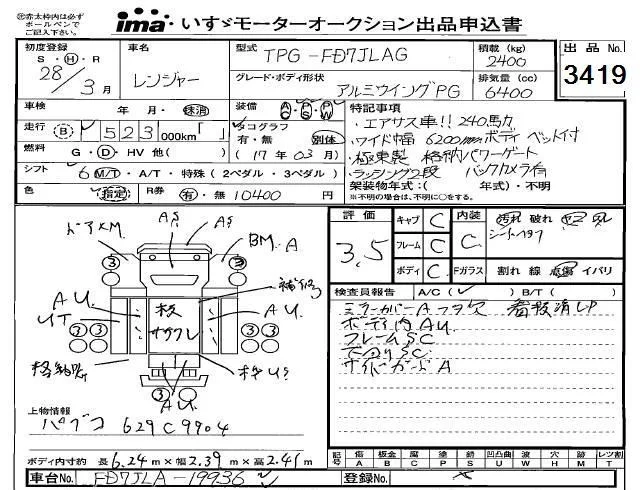 ※赤太枠内は必ず
ボールペンで
ご記入下さい。
ima いすゞモーターオークション出品申込書
初度登録 車名 型式 TPG-FD7JLAG 積載 (kg) 2400 出品No.
S・H・R 28/3月 レンジャー グレード・ボディ形状 アルミウイングPG 排気量 (cc) 6400 3419
車検 年・月・抹消 装備 A/C P/S P/W 特記事項
走行 B 523 000km「 」 タコグラフ 有・無 別体 ・エアサス車!! 240馬力
燃料 G・D・HV 他( ) (17年03月) ・ワイド幅 6200mmボディ ベット付
シフト 6 M/T・A/T・特殊 (2ペダル・3ペダル) ・極東製 格納パワーゲート
・ラッシング2段 バックカメラ有
色 (指定) R券 有・無 10400 円 架装物年式:( 年式)・不明
※不明の場合は、不明に○をする。
ドアXM. AS AS BM.A
評価 3.5 キャブ C 内装 C 汚れ 破れ
フレーム C
ボディ C Fガラス 割れ 線 点傷 イバリ
3 3
AU. AU. 補修
検査員報告 A/C( ) B/T( )
板 サクフレ
ボディ内AU.
フレームSC
サイドガードA
3 3 3 3
AU.
上物情報
パブコ 629C9904
記号 傷 A 板金 B 腐 C 塗 P 錆 S 凹凸曲 U 波 W 穴 H 跡 M レツ割 T
ボディ内寸約 長6.24m×幅2.39m×高2.41m
車台No. FD7JLA-19936 登録No.